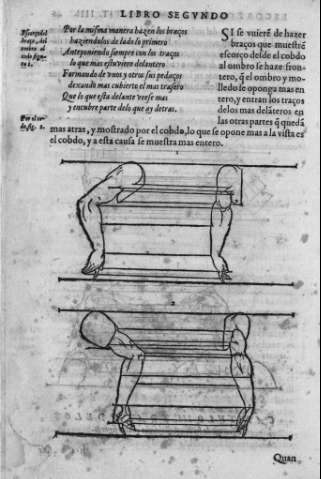 LIBRO SEGVNDO
Por la misma manera hazen los braços
haziendolos de lado lo primero
Anteponiendo siempre con los traços
lo que mas estuviere delantero
Formando de vnos y otros sus pedaços
dexando mas cubierto el mas trasero
Que lo que esta delante veese mas
y encubre parte delo que ay detras.
SI se vuierē de hazer
braços que muestrē
escorço desde el cobdo
al ombro se haze fron-
tero, q̃ el ombro y mo-
lledo se oponga mas en
tero, y entran los traços
delos mas delãteros en
las otras partes q̃ quedã
mas atras, y mostrado por el cobdo, lo que se opone mas a la vista es
el cobdo, y a esta causa se muestra mas entero.
1
2
Quan